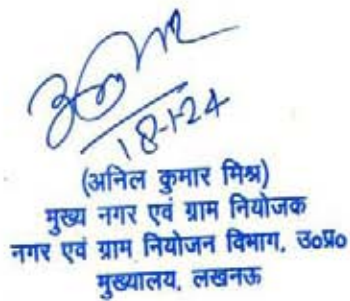 अनिल
18-1-24
(अनिल कुमार मिश्र)
मुख्य नगर एवं ग्राम नियोजक
नगर एवं ग्राम नियोजन विभाग, उ०प्र०
मुख्यालय, लखनऊ